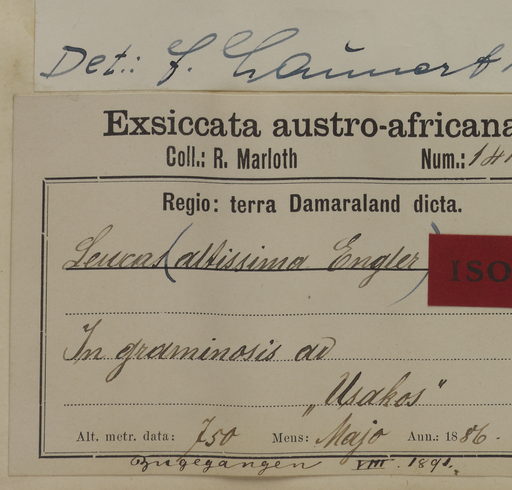 Det.: J. Launert
Exsiccata austro-africana
Coll.: R. Marloth Num.: 141
Regio: terra Damaraland dicta.
Leucas (altissima Engler)
ISO
In graminosis ad
„Usakos"
Alt. metr. data: 750 Mens: Majo Ann.: 1886.
Zugegangen VIII. 1891.